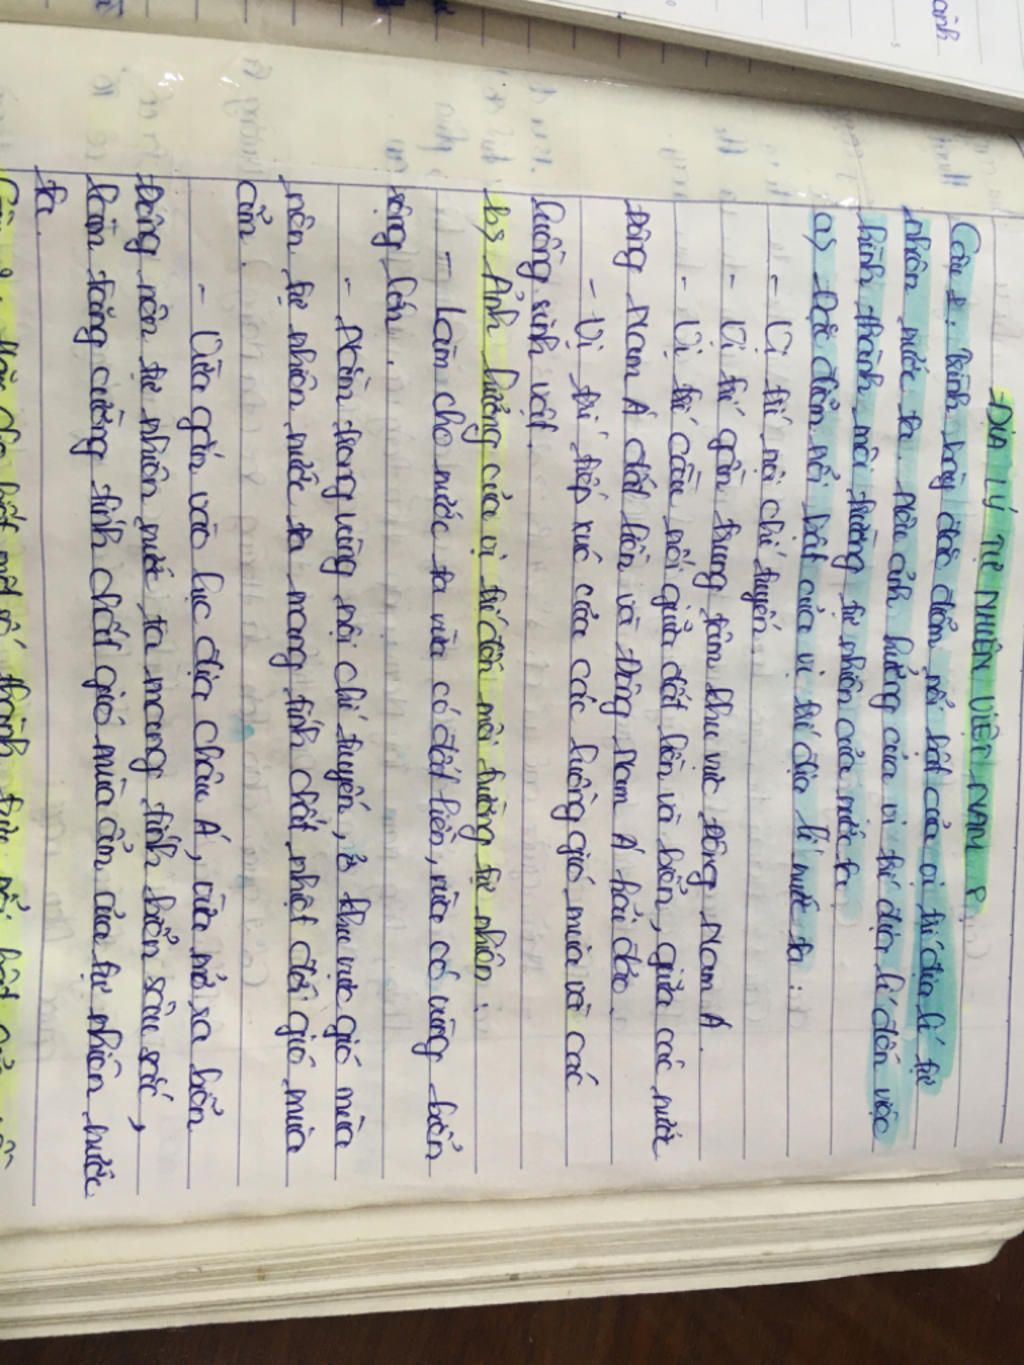 ĐỊA LÝ TỰ NHIÊN VIỆT NAM
Câu 1: Trình bày đặc điểm nổi bật của vị trí địa lí tự
nhiên nước ta. Nêu ảnh hưởng của vị trí địa lí đến việc
hình thành môi trường tự nhiên của nước ta
a) Đặc điểm nổi bật của vị trí địa lí nước ta:
- Vị trí nội chí tuyến.
- Vị trí gần trung tâm khu vực Đông Nam Á.
- Vị trí cầu nối giữa đất liền và biển, giữa các nước
Đông Nam Á đất liền và Đông Nam Á hải đảo.
- Vị trí tiếp xúc của các luồng gió mùa và các
luồng sinh vật.
b) Ảnh hưởng của vị trí đến môi trường tự nhiên:
- Làm cho nước ta vừa có đất liền, vừa có vùng biển
rộng lớn.
- Nằm trong vùng nội chí tuyến, ở khu vực gió mùa
nên tự nhiên nước ta mang tính chất nhiệt đới gió mùa
ẩm.
- Vừa gắn vào lục địa châu Á, vừa mở ra biển
Đông nên tự nhiên nước ta mang tính biển sâu sắc,
làm tăng cường tính chất gió mùa ẩm của tự nhiên nước
ta.
ảnh